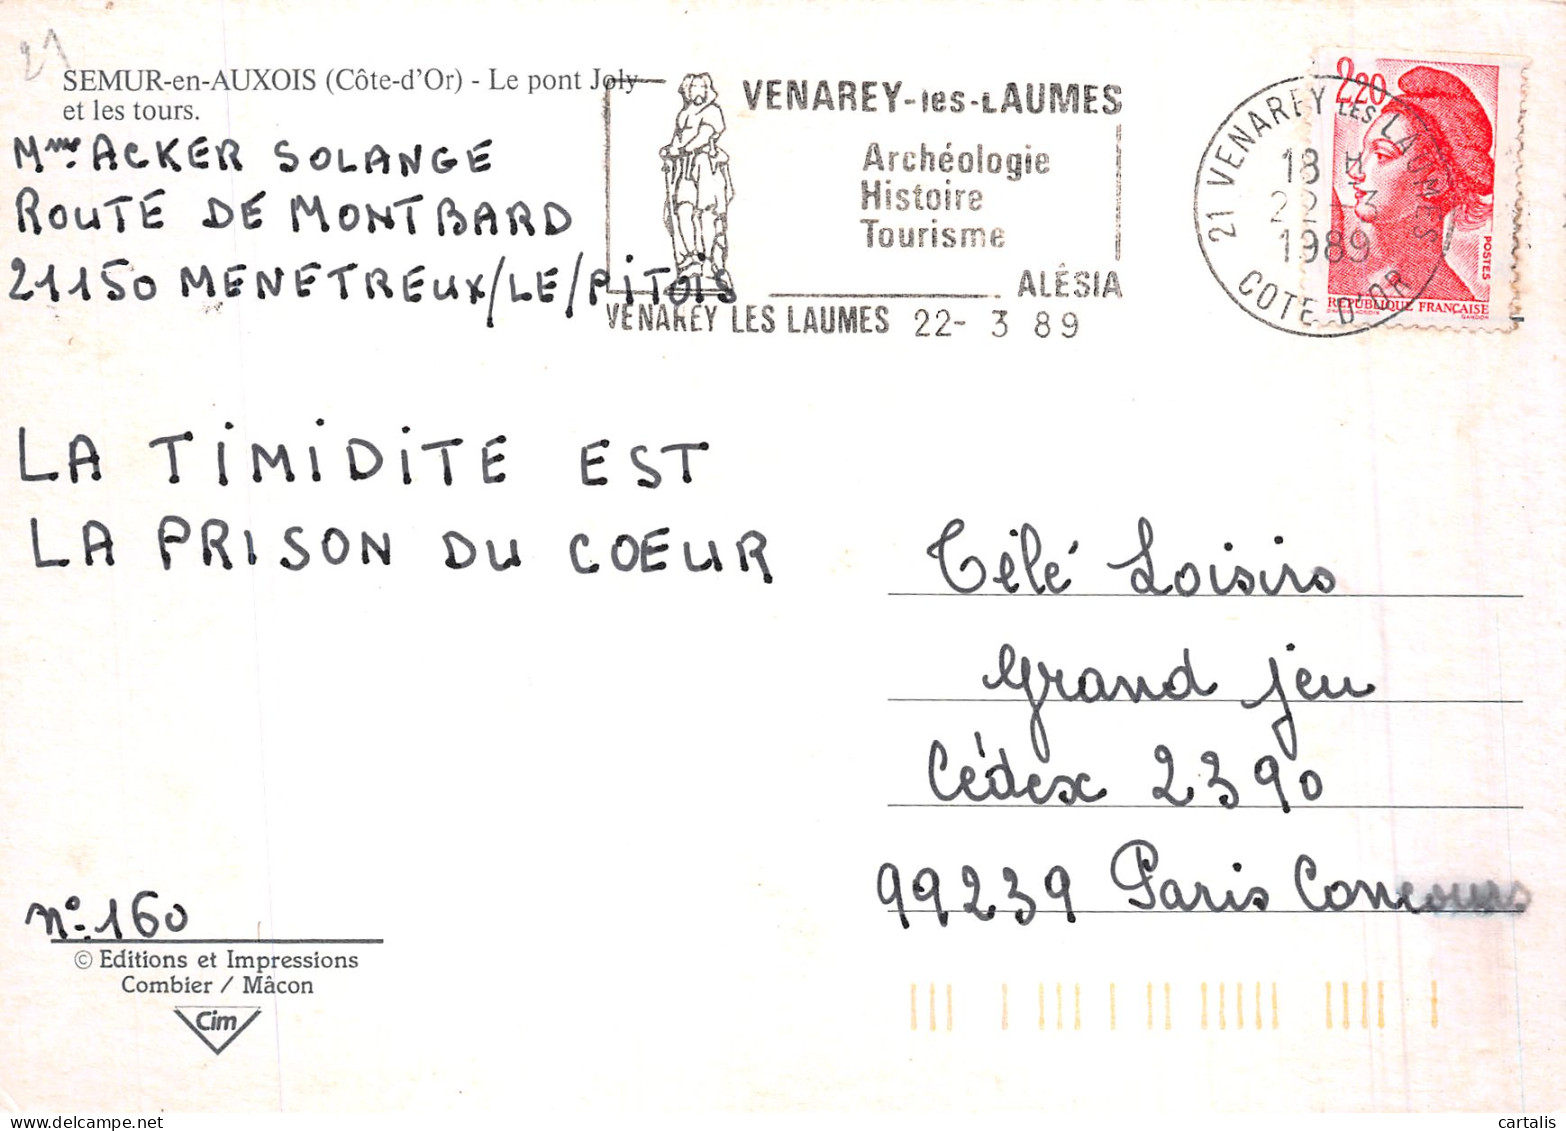 21
SEMUR-en-AUXOIS (Côte-d'Or) - Le pont Joly
et les tours.
Mme ACKER SOLANGE
ROUTE DE MONTBARD
21150 MENETREUX/LE/PITOIS
VENAREY-les-LAUMES
Archéologie
Histoire
Tourisme
ALÉSIA
VENAREY LES LAUMES 22- 3 89
21 VENAREY LES LAUMES
18 H
22-3
1989
COTE D'OR
2,20
POSTES
REPUBLIQUE FRANÇAISE
GANDON
LA TIMIDITE EST
LA PRISON DU COEUR
Télé Loisirs
Grand jeu
Cédex 2390
99239 Paris Concours
n°.160
© Editions et Impressions
Combier / Mâcon
Cim
cartalis